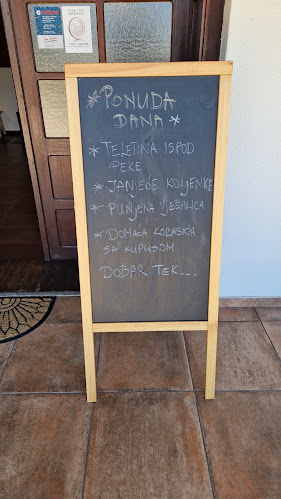 *PONUDA
DANA*
* TELETINA ISPOD
PEKE
* JANJEĆE KOLJENICE
* PUNJENA VJEŠALICA
* DOMAĆA KOBASICA
SA KUPUSOM
DOBAR TEK...